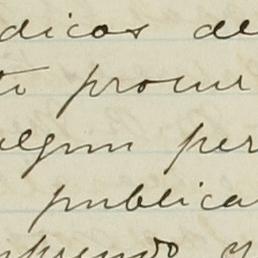 dicos de
te procur
algun per
publica
mprendo y